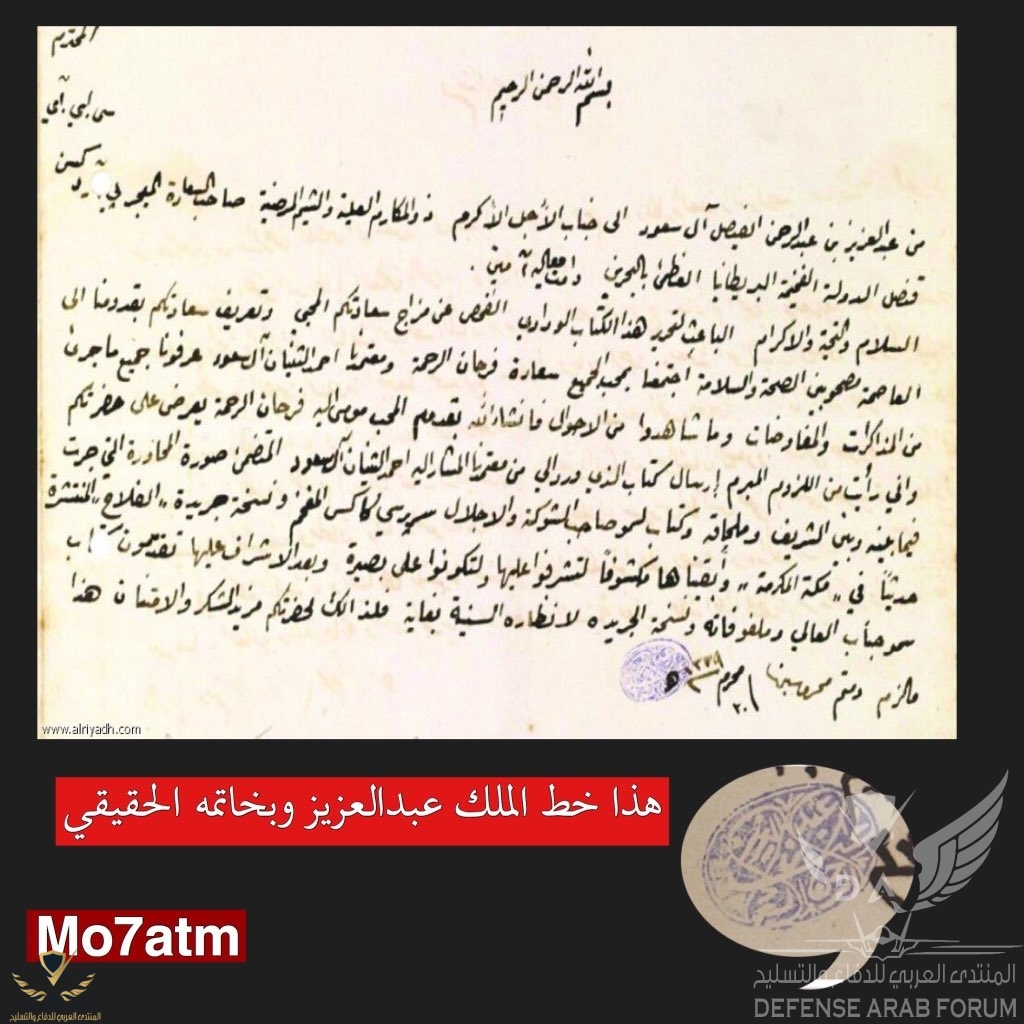 المحترم
سي إي بي
بسم الله الرحمن الرحيم
دكسن
من عبدالعزيز بن عبدالرحمن الفيصل آل سعود الى جناب الأجل الأكرم ذو المكارم العلية والشيم المرضية صاحب السعادة الميجر
قنصل الدولة الفخيمة البريطانيا العظمى بالبحرين دامت معاليه آمين .
السلام والتحية والاكرام الباعث لتحرير هذا الكتاب الودادي الفحص عن مزاج سعادتكم المحبي وتعريف سعادتكم بقدومنا الى
العاصمة مصحوبين الصحة والسلامة اجتمعنا بمحب الجميع سعادة فرحان الرحمة ومعتمدنا احمد الثنيان آل سعود عرفونا جميع ما جرى
من المذاكرات والمفاوضات وما شاهدوا من الاحوال فانشاءالله بقدوم المحب مومى اليه فرحان الرحمة يعرض على حضرتكم
واني رأيت من اللزوم المبرم إرسال كتاب الذي ورد الي من معتمدنا المشار اليه احمد الثنيان آل سعود المتضمن صورة المحاورة التي جرت
فيما بينه وبين الشريف وملحاقه وكتاب لسمو صاحب الشوكة والاجلال سر برسي كاكس المفخم ونسخة جريدة "الفلاح" المنتشرة
حديثاً في "مكة المكرمة" وأبقيناها مكشوفاً لتشرفوا عليها ولتكونوا على بصيرة وبعد الاشراف عليها تقدمون كتاب
سمو جناب العالي وملفوفاته ونسخة الجريده لانظاره السنية بغاية فلذالك لحضرتكم مزيد الشكر والامتنان هذا
مالزم ودمتم محروسين
٢٠ محرم ١٣٣٩ هـ
www.alriyadh.com
هذا خط الملك عبدالعزيز وبخاتمه الحقيقي
Mo7atm
المنتدى العربي للدفاع والتسليح
DEFENSE ARAB FORUM
المنتدى العربي للدفاع والتسليح